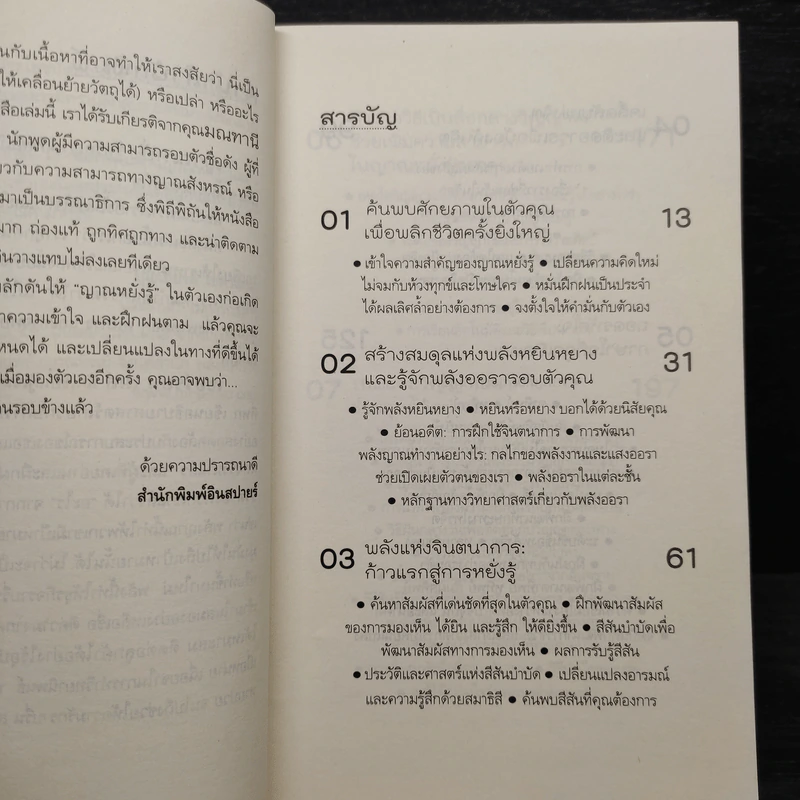 นกับเนื้อหาที่อาจทำให้เราสงสัยว่า นี่เป็น
ให้เคลื่อนย้ายวัตถุได้) หรือเปล่า หรืออะไร
สือเล่มนี้ เราได้รับเกียรติจากคุณมณฑานี
นักพูดผู้มีความสามารถรอบตัวชื่อดัง ผู้ที่
ยวกับความสามารถทางญาณสังหรณ์ หรือ
มาเป็นบรรณาธิการ ซึ่งพิถีพิถันให้หนังสือ
มาก ถ่องแท้ ถูกทิศถูกทาง และน่าติดตาม
นวางแทบไม่ลงเลยทีเดียว
ลักดันให้ "ญาณหยั่งรู้" ในตัวเองก่อเกิด
าความเข้าใจ และฝึกฝนตาม แล้วคุณจะ
หนดได้ และเปลี่ยนแปลงในทางที่ดีขึ้นได้
เมื่อมองตัวเองอีกครั้ง คุณอาจพบว่า...
นรอบข้างแล้ว
ด้วยความปรารถนาดี
สำนักพิมพ์อินสปายร์
สารบัญ
01 ค้นพบศักยภาพในตัวคุณ 13
เพื่อพลิกชีวิตครั้งยิ่งใหญ่
● เข้าใจความสำคัญของญาณหยั่งรู้ ● เปลี่ยนความคิดใหม่
ไม่จมกับห้วงทุกข์และโทษใคร ● หมั่นฝึกฝนเป็นประจำ
ได้ผลเลิศล้ำอย่างต้องการ ● จงตั้งใจให้คำมั่นกับตัวเอง
02 สร้างสมดุลแห่งพลังหยินหยาง 31
และรู้จักพลังออรารอบตัวคุณ
● รู้จักพลังหยินหยาง ● หยินหรือหยาง บอกได้ด้วยนิสัยคุณ
● ย้อนอดีต: การฝึกใช้จินตนาการ ● การพัฒนา
พลังญาณทำงานอย่างไร: กลไกของพลังงานและแสงออรา
ช่วยเปิดเผยตัวตนของเรา ● พลังออราในแต่ละชั้น
● หลักฐานทางวิทยาศาสตร์เกี่ยวกับพลังออรา
03 พลังแห่งจินตนาการ: 61
ก้าวแรกสู่การหยั่งรู้
● ค้นหาสัมผัสที่เด่นชัดที่สุดในตัวคุณ ● ฝึกพัฒนาสัมผัส
ของการมองเห็น ได้ยิน และรู้สึก ให้ดียิ่งขึ้น ● สีสันบำบัดเพื่อ
พัฒนาสัมผัสทางการมองเห็น ● ผลการรับรู้สีสัน
● ประวัติและศาสตร์แห่งสีสันบำบัด ● เปลี่ยนแปลงอารมณ์
และความรู้สึกด้วยสมาธิสี ● ค้นพบสีสันที่คุณต้องการ